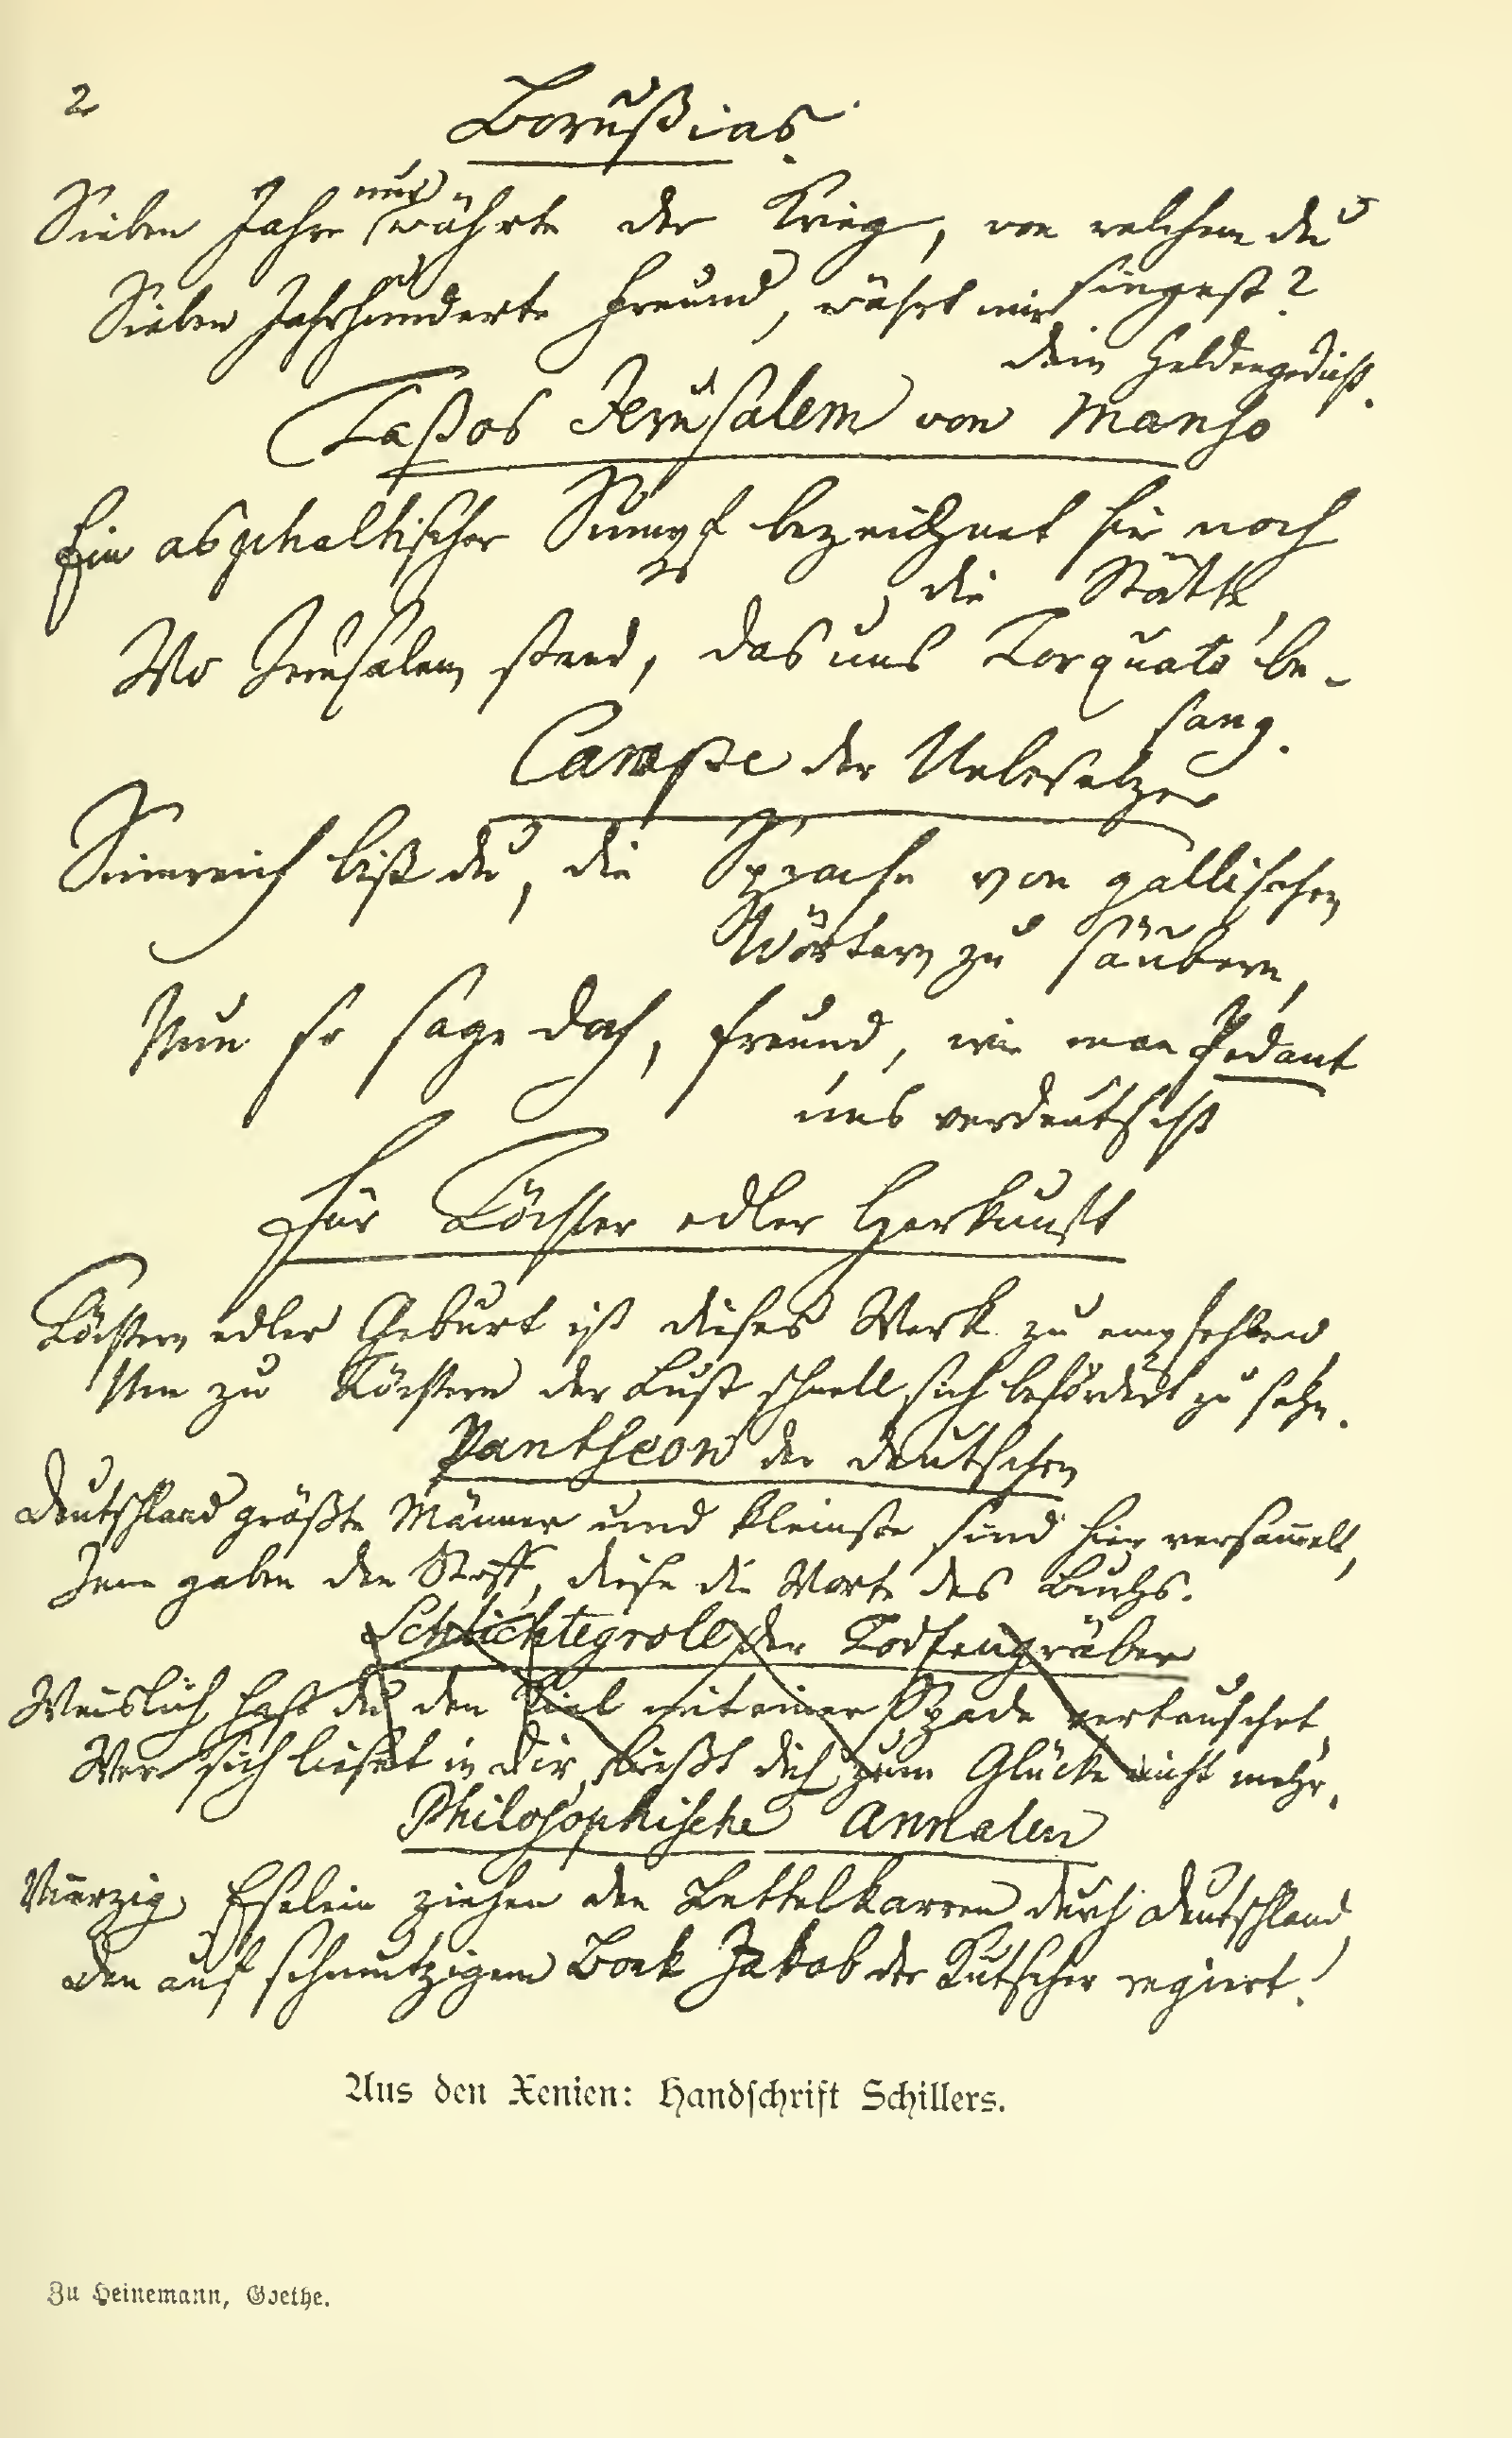 2
Borußias.
nur
Sieben Jahre währte der Krieg, von welchem du
singest?
Sieben Jahrhunderte Freund, währt mir
dein Heldengedicht.
Taßos Jerusalem von Manso
Ein asphaltischer Sumpf bezeichnet hier noch
die Stätte,
Wo Jerusalem stand, das uns Torquato be-
sang.
Campe der Uebersetzer
Sinnreich bist du, die Sprache von gallischen
Wörtern zu säubern,
Nun so sage doch, Freund, wie man Pedant
uns verdeutscht
Für Töchter edler Herkunft
Töchtern edler Geburt ist dieses Werk zu empfehlen,
Um zu Töchtern der Lust schnell sich befördert zu sehn.
Pantheon der deutschen
Deutschlands größte Männer und kleinste sind hier versammelt,
Jene gaben den Stoff, diese die Worte des Buchs.
Schlichtegroll der Todtengräber
Weislich hast du den Kiel mit einem Spade vertauschet,
Wer sich lieset in dir, ließt dich zum Glücke nicht mehr.
Philosophische Annalen
Vierzig Eselein ziehen den Bettelkarren durch Deutschland,
Den auf schmutzigem Bock Jakob der Kutscher regiert!
Aus den Xenien: Handschrift Schillers.
Zu Heinemann, Goethe.